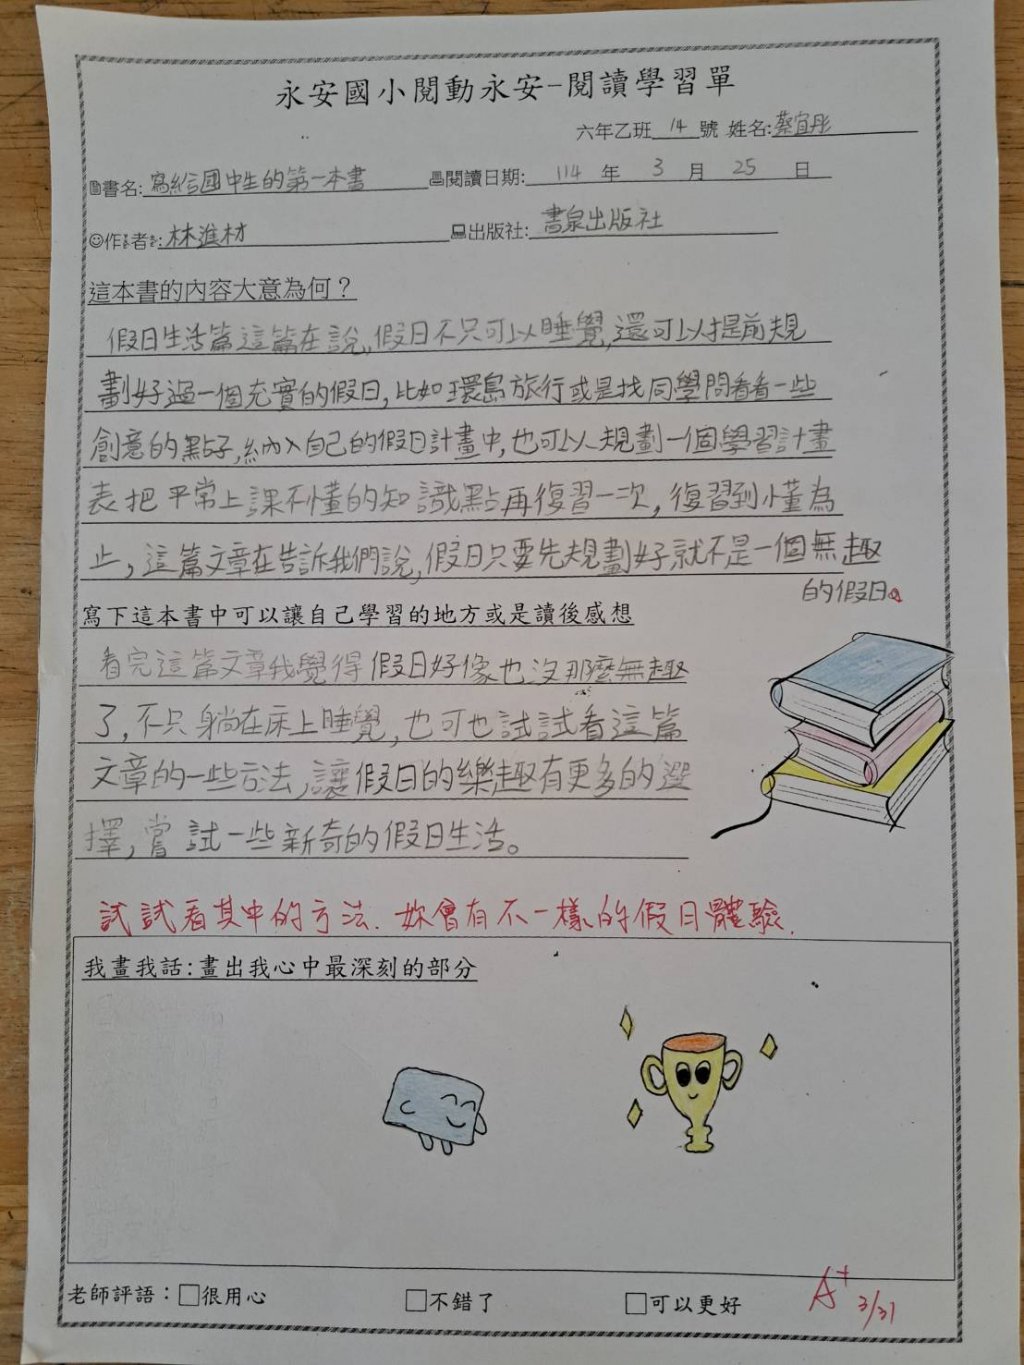 永安國小閱動永安-閱讀學習單
六年乙班 14 號 姓名:蔡宜彤
書名:寫給國中生的第一本書 閱讀日期: 114 年 3 月 25 日
作者:林進材 出版社:書泉出版社
這本書的內容大意為何？
假日生活篇這篇在說,假日不只可以睡覺,還可以提前規
劃好過一個充實的假日,比如環島旅行或是找同學問看看一些
創意的點子,納入自己的假日計畫中,也可以規劃一個學習計畫
表把平常上課不懂的知識點再復習一次,復習到懂為
止,這篇文章在告訴我們說,假日只要先規劃好就不是一個無趣
的假日。
寫下這本書中可以讓自己學習的地方或是讀後感想
看完這篇文章我覺得假日好像也沒那麼無趣
了,不只躺在床上睡覺,也可也試試看這篇
文章的一些方法,讓假日的樂趣有更多的選
擇,嘗試一些新奇的假日生活。
試試看其中的方法.妳會有不一樣的假日體驗.
我畫我話:畫出我心中最深刻的部分
老師評語：□很用心 □不錯了 □可以更好 A+ 3/31